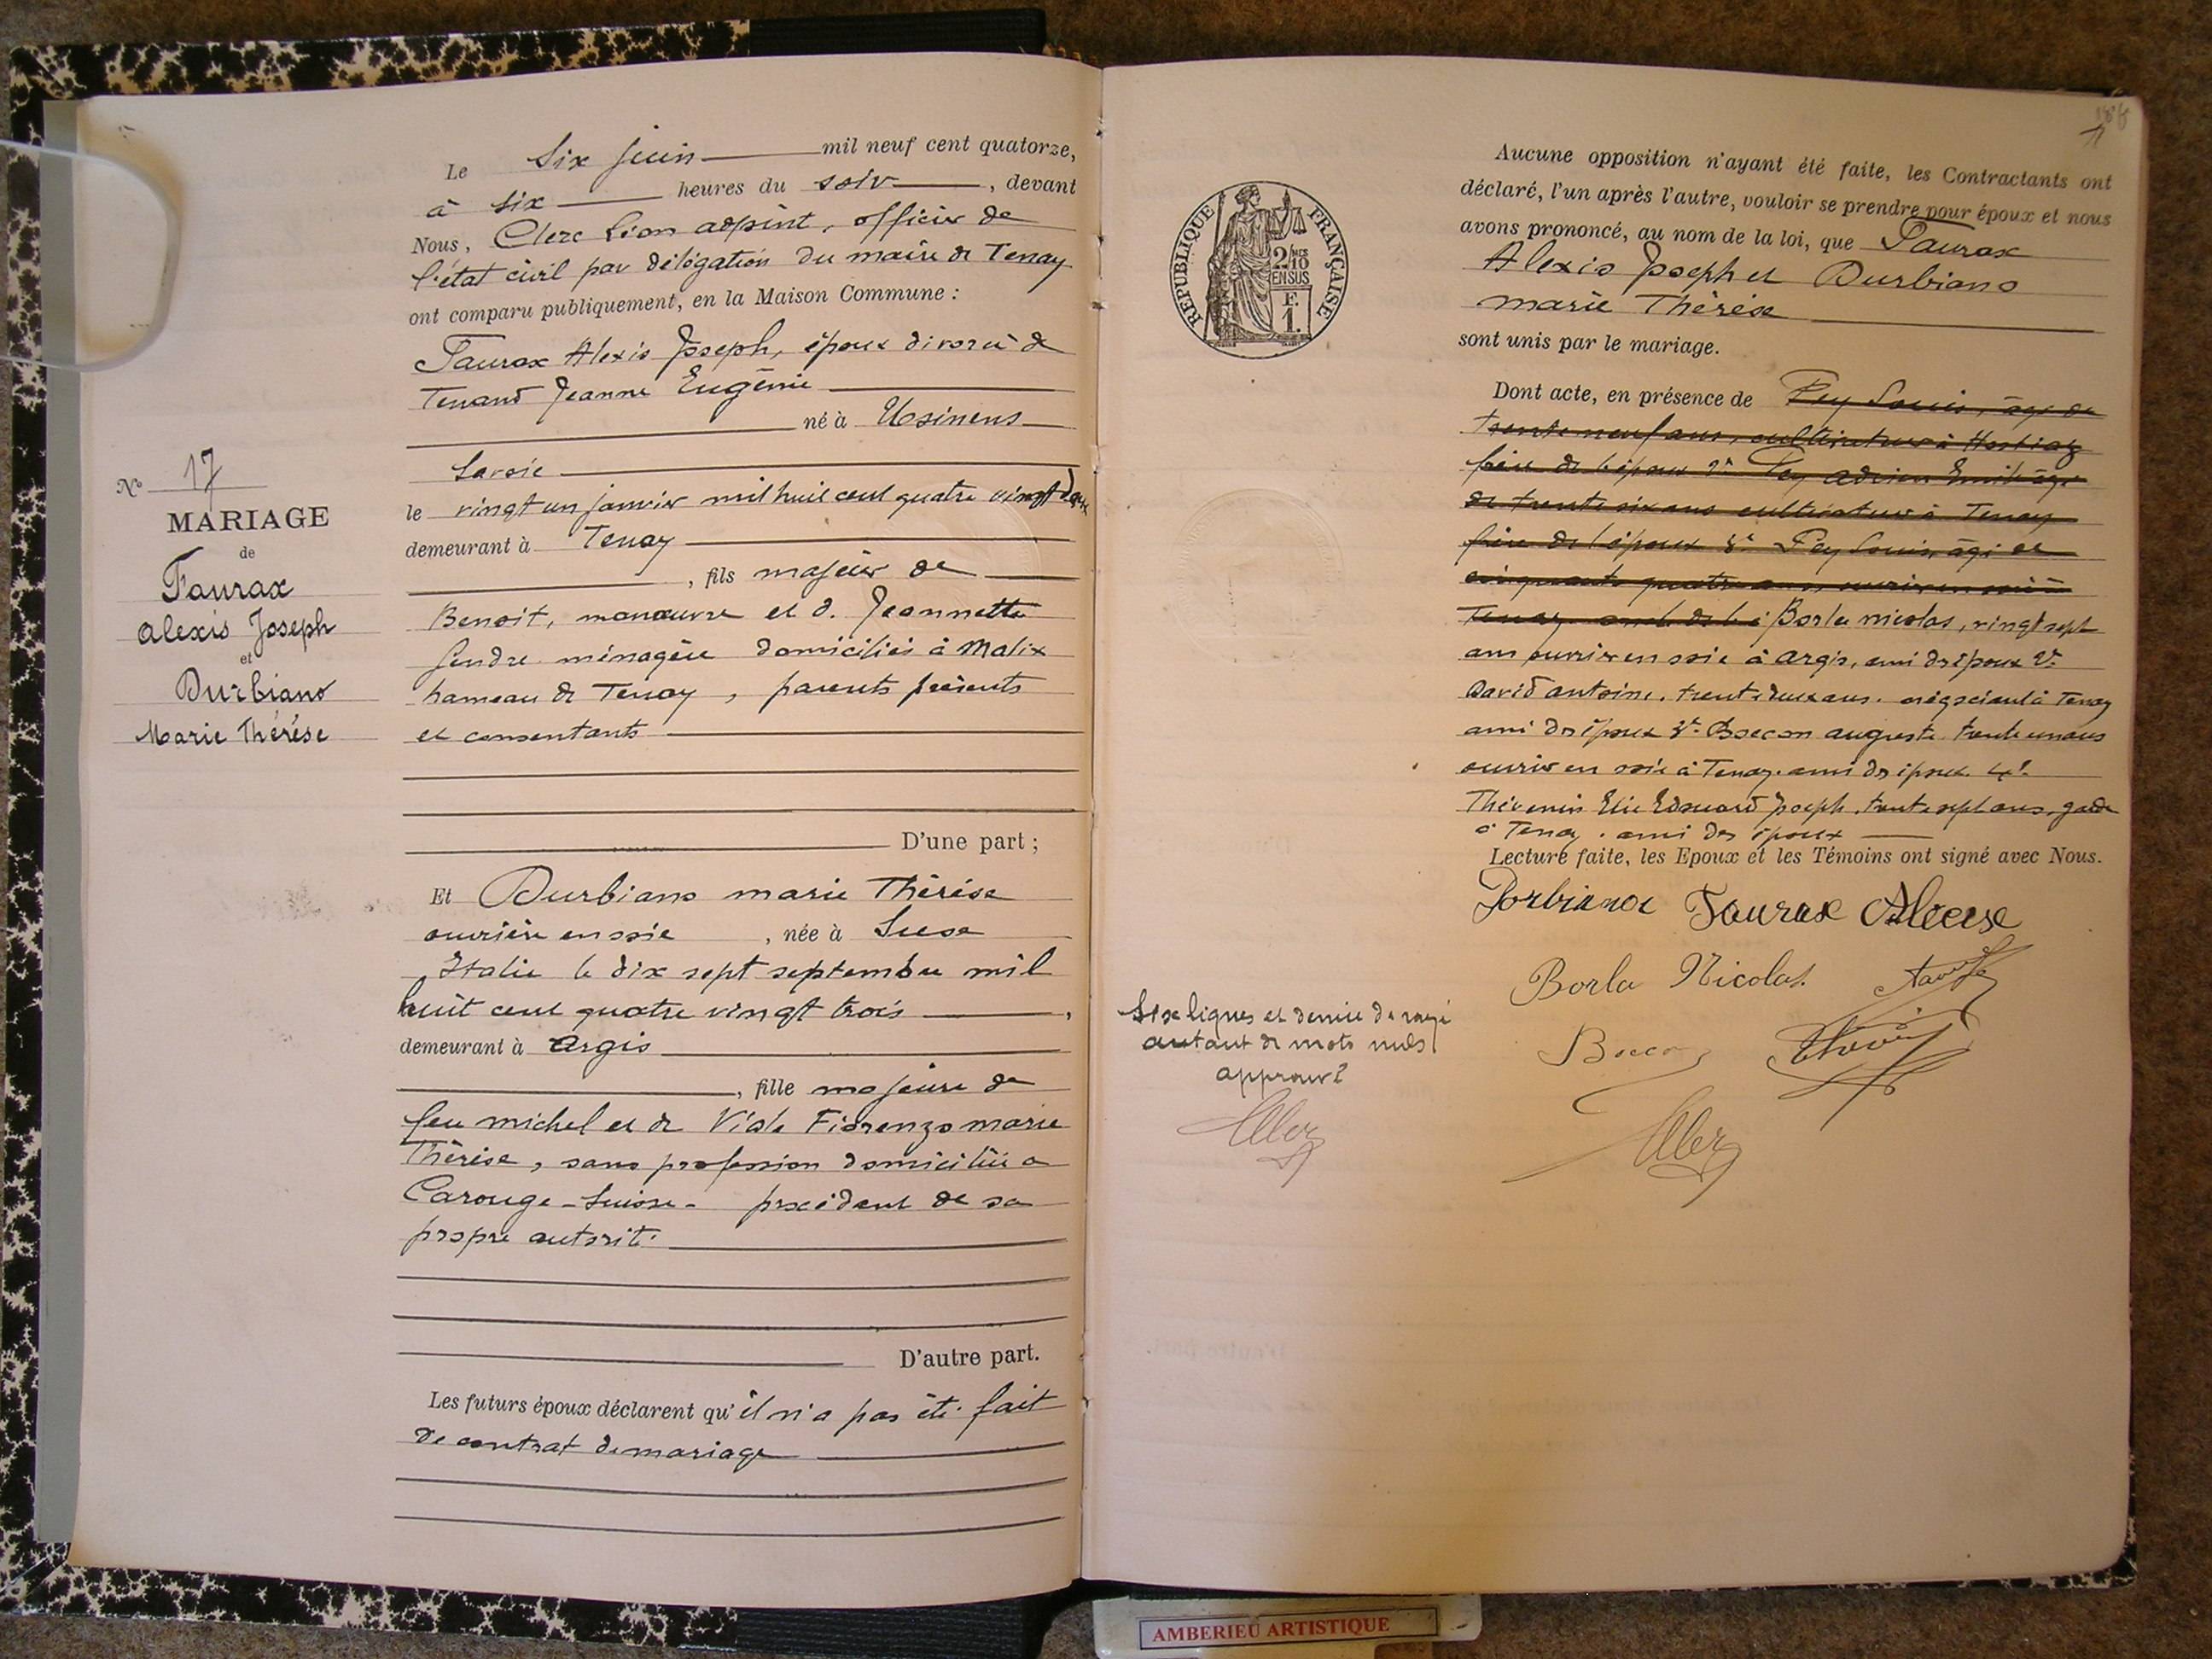 N° 17
MARIAGE
de
Faurax
Alexis Joseph
et
Durbiano
Marie Thérèse
Le six juin mil neuf cent quatorze,
à six heures du soir, devant
Nous, Clerc Léon adjoint, officier de
l'état civil par délégation du maire de Tenay
ont comparu publiquement, en la Maison Commune :
Faurax Alexis Joseph, époux divorcé de
Tenand Jeanne Eugénie
né à Usinens
Savoie
le vingt un janvier mil huit cent quatre vingt deux
demeurant à Tenay
, fils majeur de
Benoit, manœuvre et d. Jeannette
Gendre ménagère domiciliés à Malix
hameau de Tenay, parents présents
et consentants
D'une part ;
Et Durbiano marie Thérèse
ouvrière en soie, née à Suse
Italie le dix sept septembre mil
huit cent quatre vingt trois,
demeurant à Argis
, fille majeure de
feu michel et de Viale Fiorenzo marie
Thérèse, sans profession domiciliée a
Carouge - Suisse - procédant de sa
propre autorité
D'autre part.
Les futurs époux déclarent qu'il n'a pas été fait
de contrat de mariage
REPUBLIQUE FRANÇAISE
2/10
EN SUS
F.
1.
Aucune opposition n'ayant été faite, les Contractants ont
déclaré, l'un après l'autre, vouloir se prendre pour époux et nous
avons prononcé, au nom de la loi, que Faurax
Alexis Joseph et Durbiano
marie Thérèse
sont unis par le mariage.
Dont acte, en présence de Pey Louis, âgé de
trente neuf ans, cultivateur à Hostiaz
frère de l'époux 2° Pey Adrien Emile âgé
de trente six ans cultivateur à Tenay
frère de l'époux 3° Pey Louis, âgé de
cinquante quatre ans, ouvrier en soie à
Tenay Borla nicolas, vingt sept
ans ouvrier en soie à Argis, ami des époux 2°
David antoine, trente deux ans, négociant à Tenay
ami des époux 3° Boccon auguste trente un ans
ouvrier en soie à Tenay, ami des époux 4°
Thévenin Elie Edouard Joseph, trente sept ans, garde
à Tenay, ami des époux
Lecture faite, les Epoux et les Témoins ont signé avec Nous.
Faurax
Borla Nicolas.
Six lignes et demie de rayé
autant de mots nuls
approuvé
AMBERIEU ARTISTIQUE